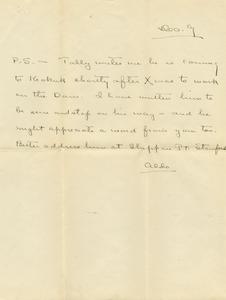 P.S. — Tabby writes me he is coming
to Keokuk shortly after Xmas to work
on the Dam. I have written him to
be sure and stop on his way — and he
might appreciate a word from you too.
Better address him at
Aldo